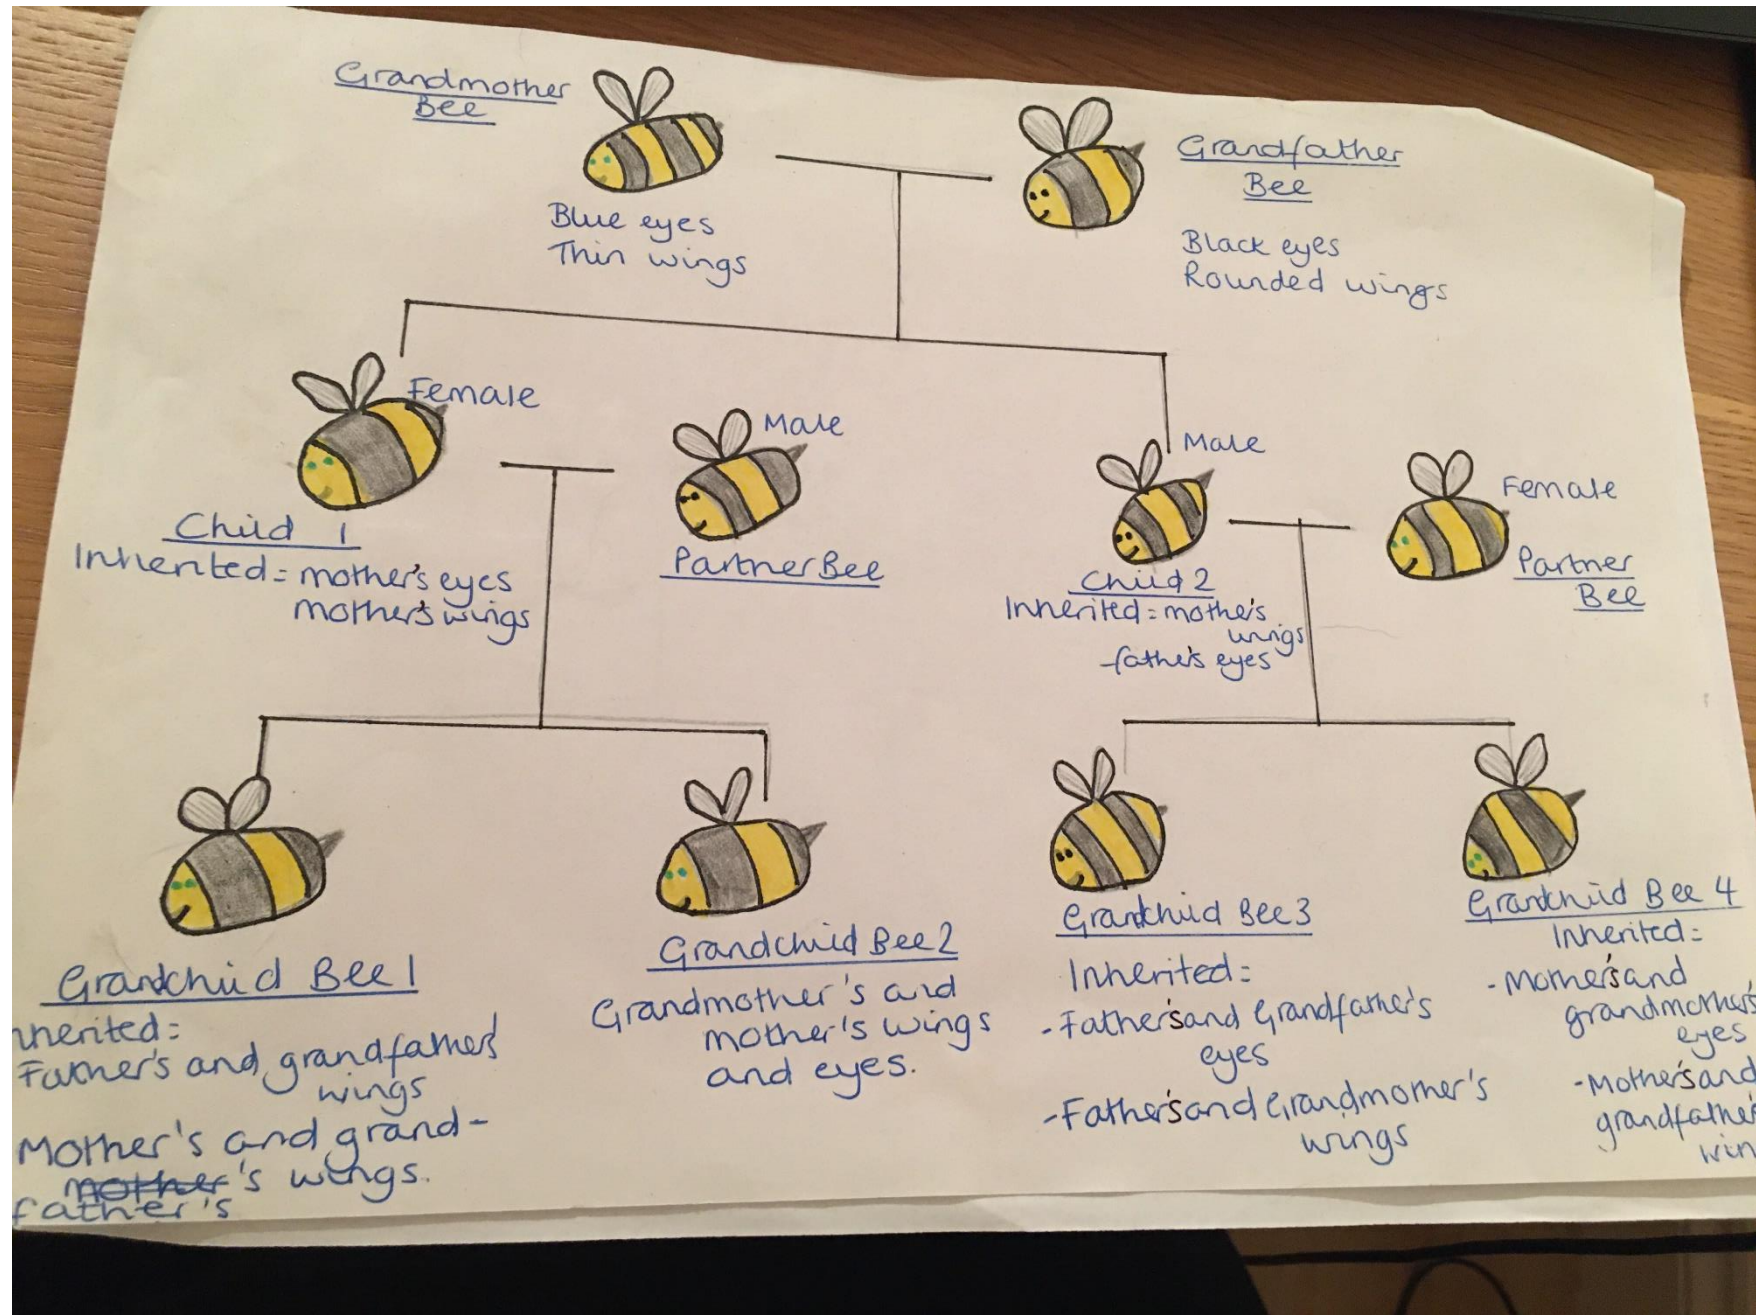 Grandmother
Bee
Blue eyes
Thin wings
Grandfather
Bee
Black eyes
Rounded wings
Female
Child 1
Inherited = mother's eyes
mother's wings
Male
Partner Bee
Male
Child 2
Inherited = mother's
wings
father's eyes
Female
Partner
Bee
Grandchild Bee 1
nherited =
Father's and grandfather's
wings
Mother's and grand-
mother's wings.
father's
Grandchild Bee 2
Grandmother's and
mother's wings
and eyes.
Grandchild Bee 3
Inherited =
- Father's and Grandfather's
eyes
- Father's and Grandmother's
wings
Grandchild Bee 4
Inherited =
- Mother's and
grandmother's
eyes
- Mother's and
grandfather's
win